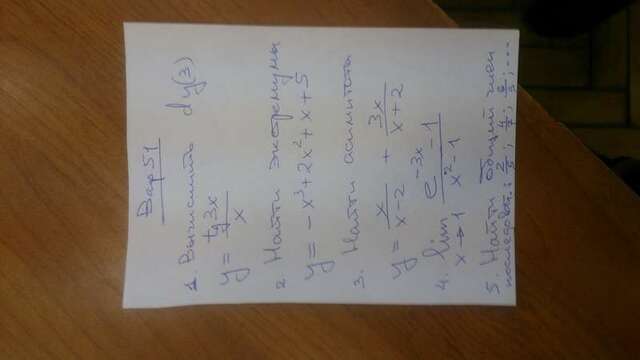 Вар 51
1. Вычислить dy(3)
y = tg3x / x
2. Найти экстремумы
y = -x³+2x²+x+5
3. Найти асимптота
y = x/(x-2) + 3x/(x+2)
4. lim x→1 (e^-3x - 1)/(x²-1)
5. Найти общий член
последоват.: 2/5; 4/7; 6/9; ...